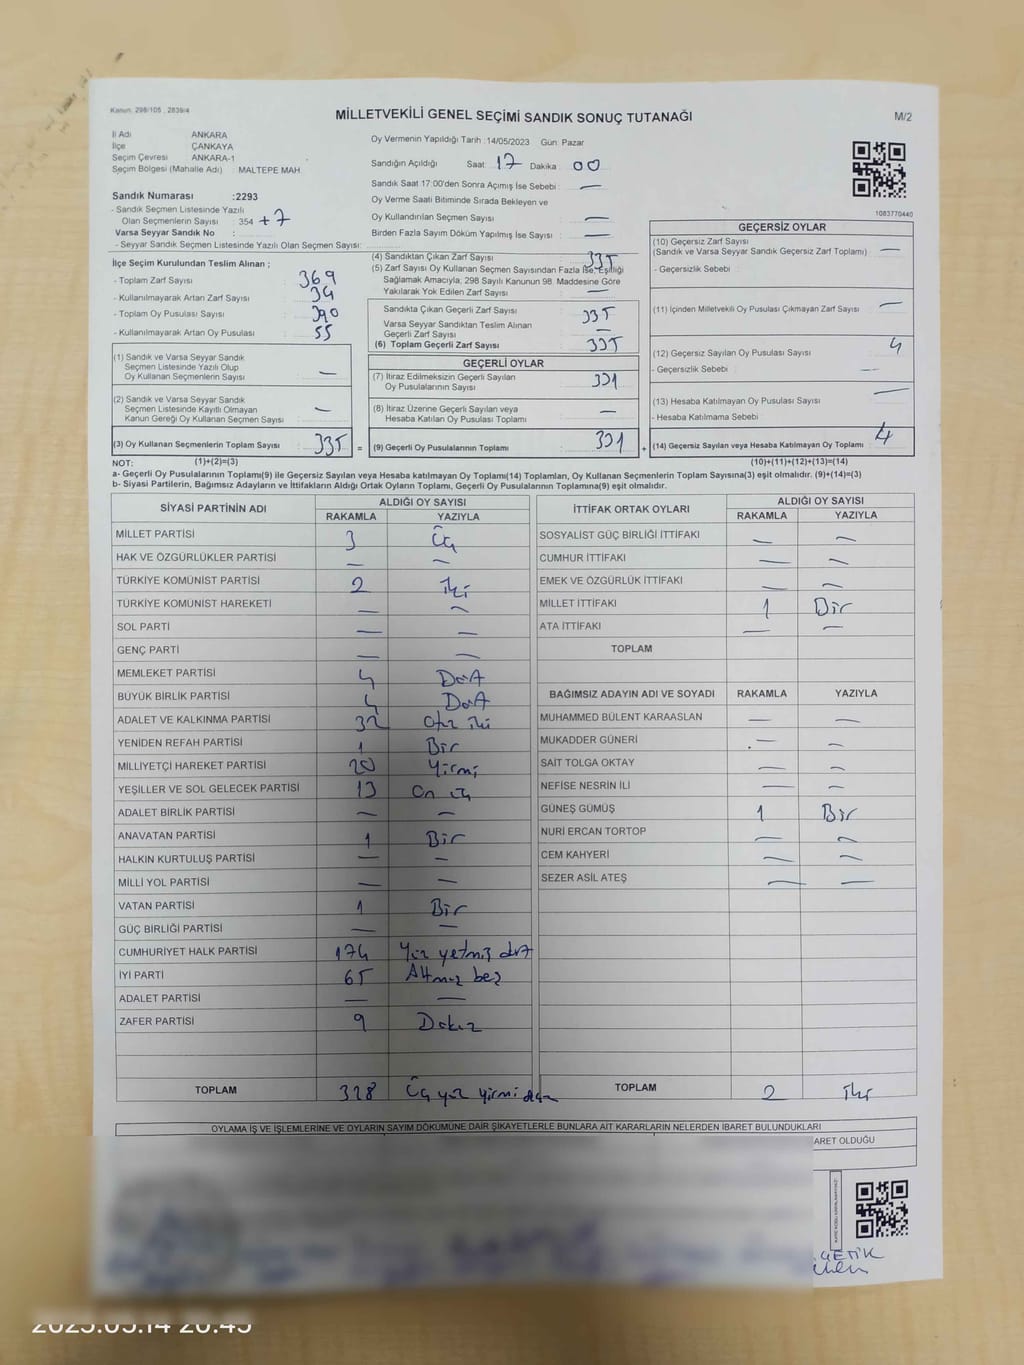 Kanun: 298/105 , 2839/4
MİLLETVEKİLİ GENEL SEÇİMİ SANDIK SONUÇ TUTANAĞI
M/2
İl Adı ANKARA
İlçe ÇANKAYA
Seçim Çevresi ANKARA-1
Seçim Bölgesi (Mahalle Adı) : MALTEPE MAH.
Sandık Numarası :2293
- Sandık Seçmen Listesinde Yazılı
Olan Seçmenlerin Sayısı : 354 +7
Varsa Seyyar Sandık No :
- Seyyar Sandık Seçmen Listesinde Yazılı Olan Seçmen Sayısı:
Oy Vermenin Yapıldığı Tarih :14/05/2023 Gün: Pazar
Sandığın Açıldığı Saat: 17 Dakika : 00
Sandık Saat 17:00'den Sonra Açımış İse Sebebi : —
Oy Verme Saati Bitiminde Sırada Bekleyen ve
Oy Kullandırılan Seçmen Sayısı —
Birden Fazla Sayım Döküm Yapılmış İse Sayısı : —
1083770440
İlçe Seçim Kurulundan Teslim Alınan ;
- Toplam Zarf Sayısı : 369
- Kullanılmayarak Artan Zarf Sayısı : 34
- Toplam Oy Pusulası Sayısı : 390
- Kullanılmayarak Artan Oy Pusulası : 55
(1) Sandık ve Varsa Seyyar Sandık
Seçmen Listesinde Yazılı Olup
Oy Kullanan Seçmenlerin Sayısı : —
(2) Sandık ve Varsa Seyyar Sandık
Seçmen Listesinde Kayıtlı Olmayan
Kanun Gereği Oy Kullanan Seçmen Sayısı : —
(3) Oy Kullanan Seçmenlerin Toplam Sayısı : 335 =
(4) Sandıktan Çıkan Zarf Sayısı : 335
(5) Zarf Sayısı Oy Kullanan Seçmen Sayısından Fazla İse, Eşitliği
Sağlamak Amacıyla; 298 Sayılı Kanunun 98. Maddesine Göre
Yakılarak Yok Edilen Zarf Sayısı : —
Sandıkta Çıkan Geçerli Zarf Sayısı : 335
Varsa Seyyar Sandıktan Teslim Alınan
Geçerli Zarf Sayısı : —
(6) Toplam Geçerli Zarf Sayısı : 335
GEÇERLİ OYLAR
(7) İtiraz Edilmeksizin Geçerli Sayılan
Oy Pusulalarının Sayısı : 331
(8) İtiraz Üzerine Geçerli Sayılan veya
Hesaba Katılan Oy Pusulası Toplamı : —
(9) Geçerli Oy Pusulalarının Toplamı : 331 +
GEÇERSİZ OYLAR
(10) Geçersiz Zarf Sayısı
(Sandık ve Varsa Seyyar Sandık Geçersiz Zarf Toplamı) : —
- Geçersizlik Sebebi :
(11) İçinden Milletvekili Oy Pusulası Çıkmayan Zarf Sayısı : —
(12) Geçersiz Sayılan Oy Pusulası Sayısı : 4
- Geçersizlik Sebebi : —
(13) Hesaba Katılmayan Oy Pusulası Sayısı : —
- Hesaba Katılmama Sebebi :
(14) Geçersiz Sayılan veya Hesaba Katılmayan Oy Toplamı : 4
NOT: (1)+(2)=(3) (10)+(11)+(12)+(13)=(14)
a- Geçerli Oy Pusulalarının Toplamı(9) ile Geçersiz Sayılan veya Hesaba katılmayan Oy Toplamı(14) Toplamları, Oy Kullanan Seçmenlerin Toplam Sayısına(3) eşit olmalıdır. (9)+(14)=(3)
b- Siyasi Partilerin, Bağımsız Adayların ve İttifakların Aldığı Ortak Oyların Toplamı, Geçerli Oy Pusulalarının Toplamına(9) eşit olmalıdır.
SİYASİ PARTİNİN ADI ALDIĞI OY SAYISI
RAKAMLA YAZIYLA
MİLLET PARTİSİ 3 Üç
HAK VE ÖZGÜRLÜKLER PARTİSİ — —
TÜRKİYE KOMÜNİST PARTİSİ 2 iki
TÜRKİYE KOMÜNİST HAREKETİ — —
SOL PARTİ — —
GENÇ PARTİ — —
MEMLEKET PARTİSİ 4 Dört
BÜYÜK BİRLİK PARTİSİ 4 Dört
ADALET VE KALKINMA PARTİSİ 32 Otuz iki
YENİDEN REFAH PARTİSİ 1 Bir
MİLLİYETÇİ HAREKET PARTİSİ 20 Yirmi
YEŞİLLER VE SOL GELECEK PARTİSİ 13 On üç
ADALET BİRLİK PARTİSİ — —
ANAVATAN PARTİSİ 1 Bir
HALKIN KURTULUŞ PARTİSİ — —
MİLLİ YOL PARTİSİ — —
VATAN PARTİSİ 1 Bir
GÜÇ BİRLİĞİ PARTİSİ — —
CUMHURİYET HALK PARTİSİ 174 Yüz yetmiş dört
İYİ PARTİ 65 Altmış beş
ADALET PARTİSİ — —
ZAFER PARTİSİ 9 Dokuz
TOPLAM 328 Üç yüz yirmi
İTTİFAK ORTAK OYLARI ALDIĞI OY SAYISI
RAKAMLA YAZIYLA
SOSYALİST GÜÇ BİRLİĞİ İTTİFAKI — —
CUMHUR İTTİFAKI — —
EMEK VE ÖZGÜRLÜK İTTİFAKI — —
MİLLET İTTİFAKI 1 Bir
ATA İTTİFAKI — —
TOPLAM
BAĞIMSIZ ADAYIN ADI VE SOYADI RAKAMLA YAZIYLA
MUHAMMED BÜLENT KARAASLAN — —
MUKADDER GÜNERİ — —
SAİT TOLGA OKTAY — —
NEFİSE NESRİN İLİ — —
GÜNEŞ GÜMÜŞ 1 Bir
NURİ ERCAN TORTOP — —
CEM KAHYERİ — —
SEZER ASİL ATEŞ — —
TOPLAM 2 iki
OYLAMA İŞ VE İŞLEMLERİNE VE OYLARIN SAYIM DÖKÜMÜNE DAİR ŞİKAYETLERLE BUNLARA AİT KARARLARIN NELERDEN İBARET BULUNDUKLARI
ARET OLDUĞU
2023.05.14 20:45